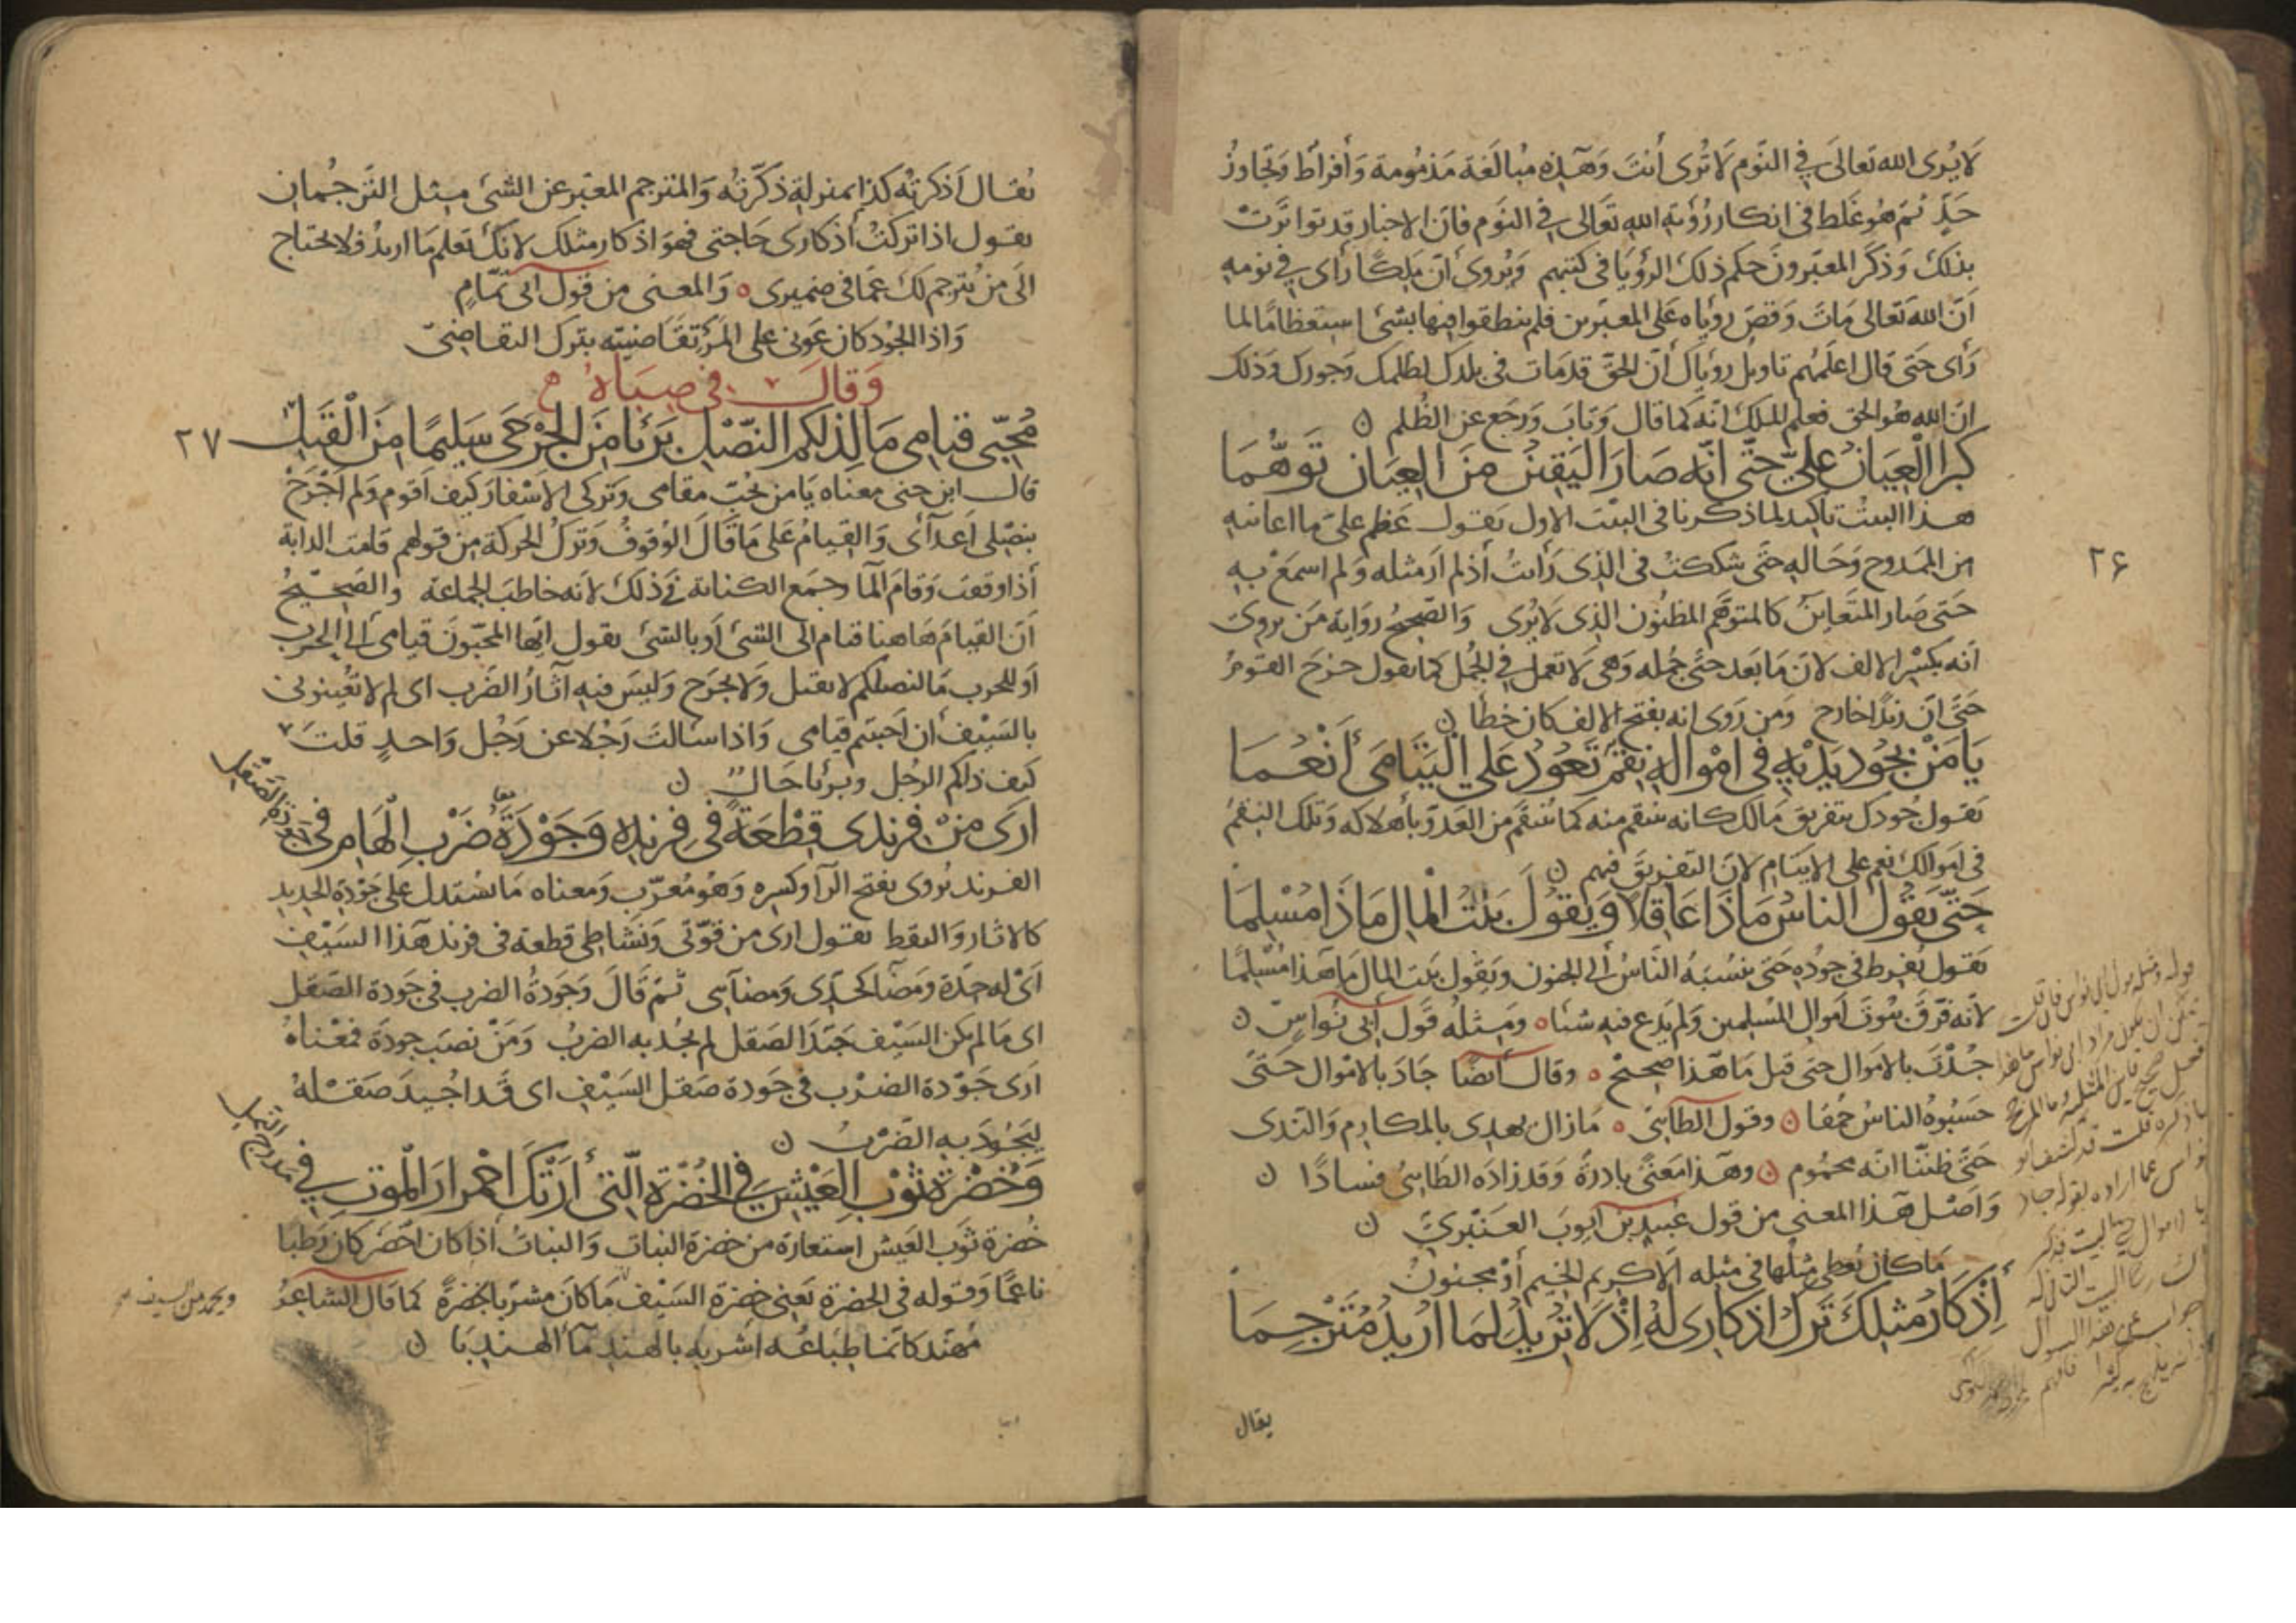 لا يُرى الله تعالى في النوم لا تُرى أنتَ وَهَذِه مُبالَغة مَذمُومة وَأفراط وتجاوزُ
حَدٍّ ثم هُو غَلط في انكار رُؤية الله تعَالى في النوَم فانّ الاخبار قد تواترَتْ
بذلك وَذكَر المعَبّرونَ حكم ذلك الرؤيَا في كتبهم وَيُروى أنّ مَلِكًا رَأى في نومه
أنّ الله تعَالى مَاتَ وَقصَ رؤيَاه عَلى المعَبّرين فلم ينطقوا فيها بشئ استعظامًا لما
رَأى حَتى قال اعلَمُهم تاويل رويَاك أنّ الحقّ قد مَات في بلدك لظلمك وَجورك وَذلك
انّ الله هُو الحق فعلم الملك انّه كمَا قال وَتابَ وَرجَع عن الظُلم
كَبُرَ العِيَانُ عَليّ حتّى انّه صَارَ اليَقِينُ مِنَ العِيَانِ تَوَهُّمَا
هذا البيتُ تاكيد لما ذكرنا في البيت الاول يَقول عَظم عليّ ما اعاينه
من الممدوح وَحَاله حَتّى شككتُ في الذي رَأيتُ أذ لم ارَ مثله وَلم اسمَعْ به
حَتى صَار المتَعاينُ كالمتوهَّم المظنُون الذي لا يُرى وَالصّحيحُ روَاية مَن يروى
انه بكسْر الالف لانّ مَا بَعد حتّى جُمله وَهى لا تعمل في الجُمل كما يقول خرجَ القومُ
حَتّى انّ زيدًا خارج وَمن رَوى انه بفتح الالف كان خطأ
يَا مَنْ بجُودِ يَدَيْهِ في امْوَاله نِقَمٌ تَعُودُ عَلى اليَتَامَى أنْعُمَا
يَقول جُودك بتفريق مَالك كانه ينتقم منه كما يُنتقَم من العَدوّ بأهلاكه وَتلك النِقمُ
في امَوالك نعم على الايتام لانّ التفريقَ فيهم
حَتّى يَقُولَ الناسُ مَاذَا عَاقِلًا وَيَقُولَ بَيْتُ المْالِ مَاذَا مُسْلِمَا
يَقول يُفرط في جودُه حَتى ينسُبَهُ النّاسُ الى الجنون وَيقول بَيت المال مَا هَذا مُسْلِمًا
لأنّه فرّقَ بيُوتَ اموال المسْلمين وَلم يَدع فيه شيئًا ومَثله قَول أبي نُواسٍ
جُدْتَ بالاموَال حتى قيل مَا هَذا صحيحْ وقال أيضًا جَادَ بالامْوال حَتّىَ
حَسبُوهُ الناسُ حُمقا وقول الطائيّ مَا زال يهذي بالمكارم وَالنّدى
حَتّى ظننّا انّه محمُوم وهَذا مَعنىً بادرَةٌ وَقد زادَه الطائيُّ فسادًا
وَاصْل هَذا المعنى من قول عُبيد بن ايوبَ العَنبَريّ
مَا كان يُعطى مثلها في مثله الّا كريم الخيم أوْ مجنونُ
أذْكَارُ مثلِكَ تَركُ اذكَاري لَهُ اِذْ لَا تُرِيدُ لمَا ارُيدُ مُتَرْجِمَا
٢۶
يقال
يُقال اَذكَرتُه كذا بمنزلة ذكَّرتُه وَالمترجم المعَبّر عن الشئ مثل التَرجُمان
يقول اذا تركتُ أذكارى حَاجتى فهوَ اذكار مثلك لانّك تعلم مَا اريدُ فلا تحتاج
الى مَن يُترجم لك عمّا في ضميرى وَالمعنى من قول ابى تمّام
وَاذا الجُود كان عَوني على المَرْء تقَاضيته بترك التقاضيّ
وَقالَ في صِباهُ
مُحِبّى قيَامى مَا لِذلِكُم النّصْلِ بَرِئًا مِنَ الجَرْحَى سَلِيمًا مِنَ الْقَتْلِ
٢٧
قال ابن جنى معناه يَا من يحُبّ مقَامى وَتركى الاسْفارَ كيف اَقوم وَلم اَجْرَحْ
بنصْلى اَعدآئى وَالقيامُ عَلى مَا قالَ الوُقوفُ وَتركُ الحركة من قولهم قامت الدابة
أذا وقفت وَقامَ المآ وجمَع الكناية في ذلك لانه خاطبَ الجماعة والصَحيحُ
انّ القيامَ هَاهنا قيام الى الشئ أو بالشئ يقول ايّها المحبّونَ قيامى الى الحرب
أو للحرب مَا لنصلكم لا يقتل وَلا يجرَح وَليسَ فيه آثارُ الضَرب اى لم لا تعُينونى
بالسَيْف أن احَببتم قيامى وَاذا سَالتَ رَجُلا عن رَجُل وَاحدٍ قلتَ
كيف ذلكم الرجُل وبريًا حَالٌ
اَرَى مِنْ فِرِنْدِى قِطْعَةً في فِرِنْدِهِ وَجَوْدَةُ ضَرْبِ الْهَامِ في جَودَة الصَقْلِ
الفرند يُروى بفتح الرّآ وكسره وَهُو مُعَرّب وَمعناه مَا يُستدل على جَوْدة الحديد
كالاثار وَالنقط يقول ارى من قوّتى وَنشاطى قطعة في فرند هَذا السَيْف
اَىْ له حِدّة ومَضآ كحدّى وَمضائى ثُمّ قَالَ وَجودةُ الضرب في جَودة الصَقل
اى مَا لم يكن السَيْف جَيّد الصَقل لم يجُد به الضربُ وَمَنْ نصَب جودةَ فمعْناهُ
ارَى جَوْدة الضرْب في جَودة صَقل السَيْف اى قد اجُيدَ صَقْلهُ
ليَجُودَ به الضَرْبُ
وَخُضرَةُ ثَوْبِ العَيْشِ في الخُضْرَةِ الّتى أَرَتْكَ احْمِرَارَ الْمَوتِ في مَدرَج النملِ
خُضرة ثَوب العَيش استعارَة من خضرَة النبات وَالنباتُ أذا كان اخضَر كان رَطبا
ناعمًا وَقوله في الخضرة يَعنى خضرَة السَيْف مَا كانَ مشربًا بخضرَةً كما قال الشاعرُ
مُهَنّد كانّما طبّاعُه اشربه بالهند مآ الهندِبَا